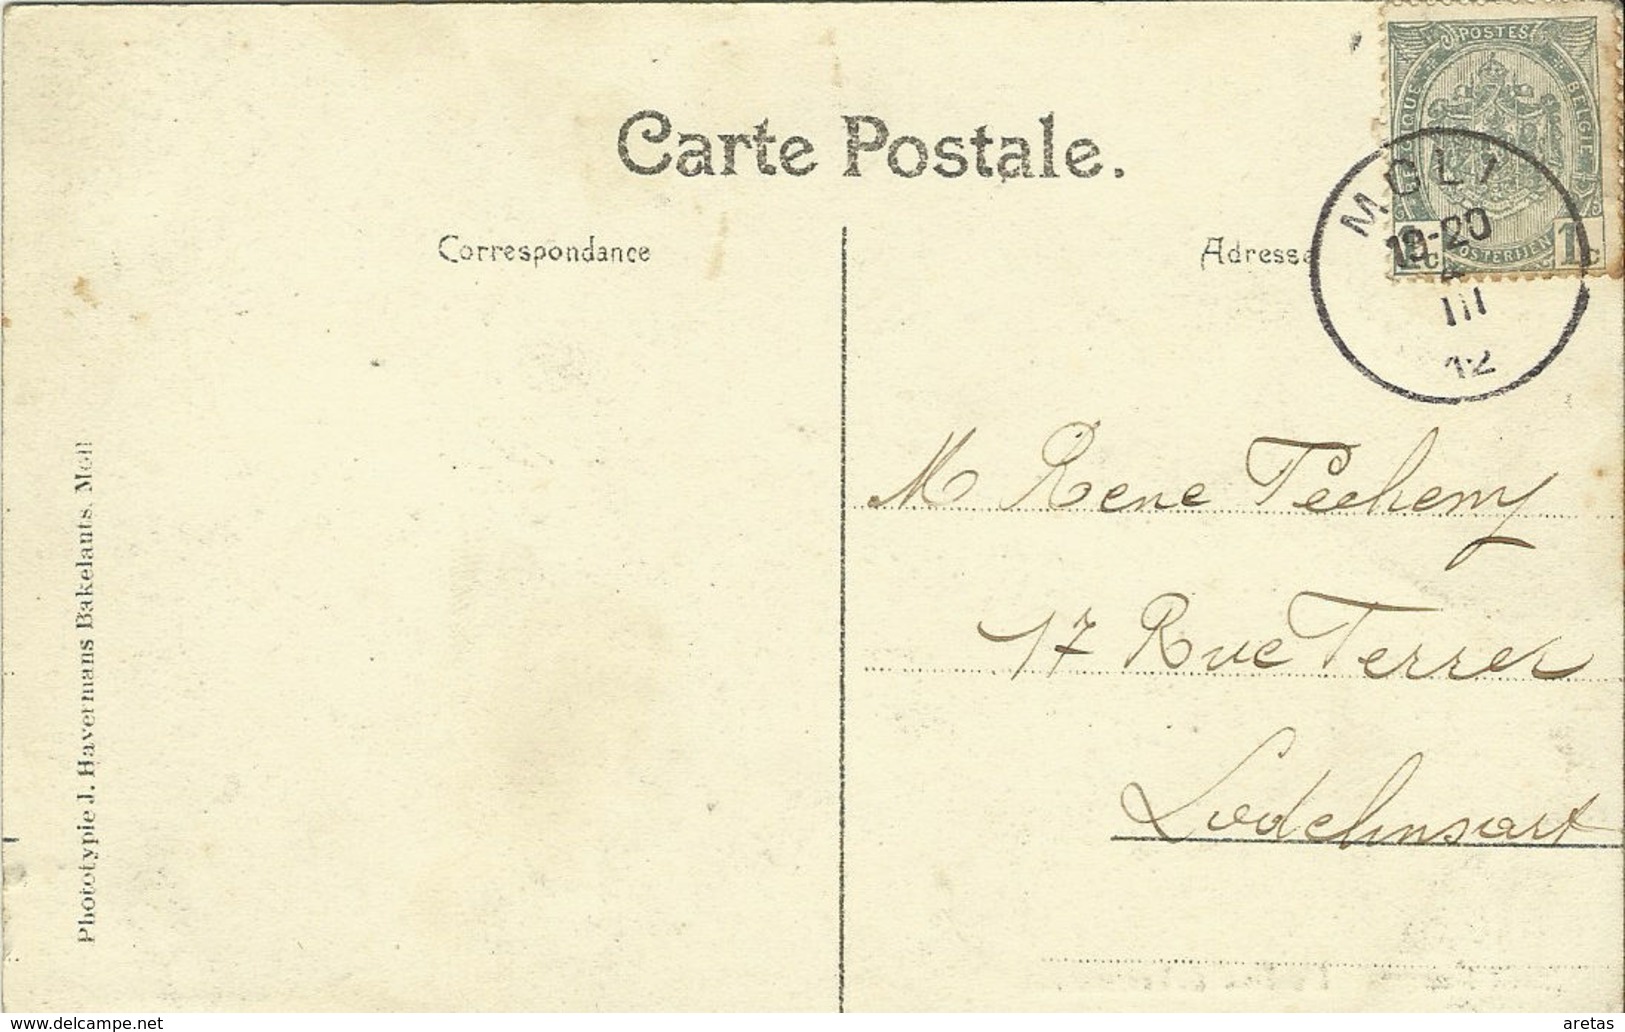 Carte Postale.
Correspondance
Adresse
POSTES
BELGIË
POSTERIJEN
1c 1c
MOLL
19-20
4
III
12
M Rene
17 Rue Ferrer
Lodelinsart
Phototypie J. Havermans Bakelants. Moll
www.delcampe.net
aretas